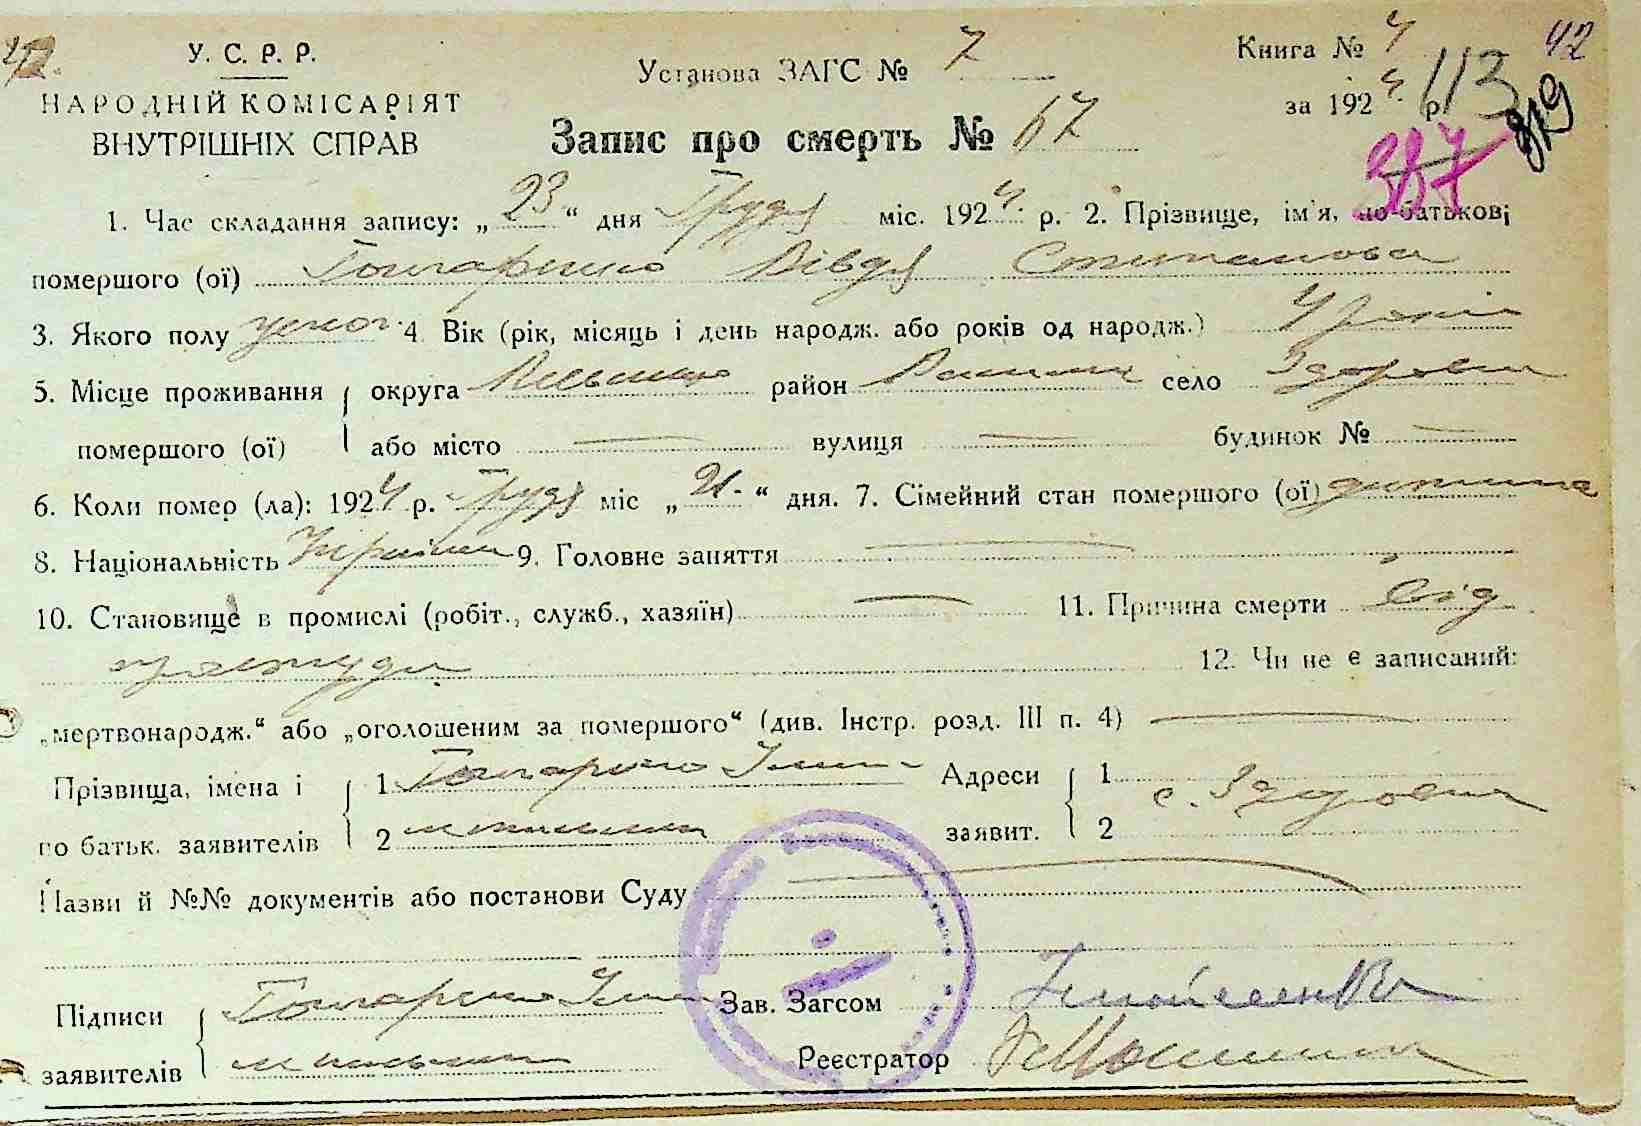 42.
У. С. Р. Р.
НАРОДНІЙ КОМІСАРІЯТ
ВНУТРІШНІХ СПРАВ
Установа ЗАГС № 7
Запис про смерть № 67
Книга № 4 42
за 1924 р. 113
387 819
1. Час складання запису: „23“ дня Грудя міс. 1924 р. 2. Прізвище, ім'я, по-батькові
помершого (ої) Гончаренко Вівдя Степанова
3. Якого полу жіноч. 4. Вік (рік, місяць і день народж. або років од народж.) 4 роки
5. Місце проживання округа район село Здоровка
помершого (ої) або місто — вулиця — будинок № —
6. Коли помер (ла): 1924 р. Грудя міс „21“ дня. 7. Сімейний стан помершого (ої) дитина
8. Національність 9. Головне заняття —
10. Становище в промислі (робіт., служб., хазяїн) — 11. Причина смерти від
простуди 12. Чи не є записаний:
„мертвонародж.“ або „оголошеним за помершого“ (див. Інстр. розд. III п. 4) —
Прізвища, імена і 1 Гончаренко Адреси 1
по батьк. заявителів 2 заявит. 2 с. Здоровка
Назви й №№ документів або постанови Суду —
Підписи Гончаренко Зав. Загсом
заявителів Реєстратор